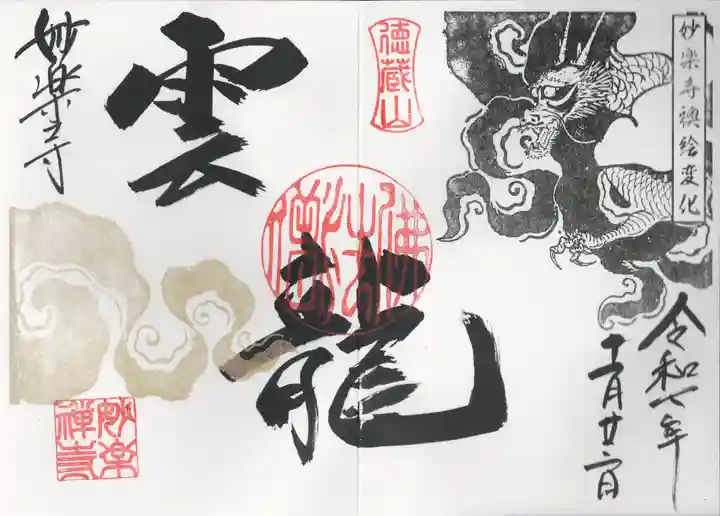 妙楽寺襖絵変化
令和七年
徳蔵山
佛法僧
雲
龍
妙楽寺
妙楽
禅寺